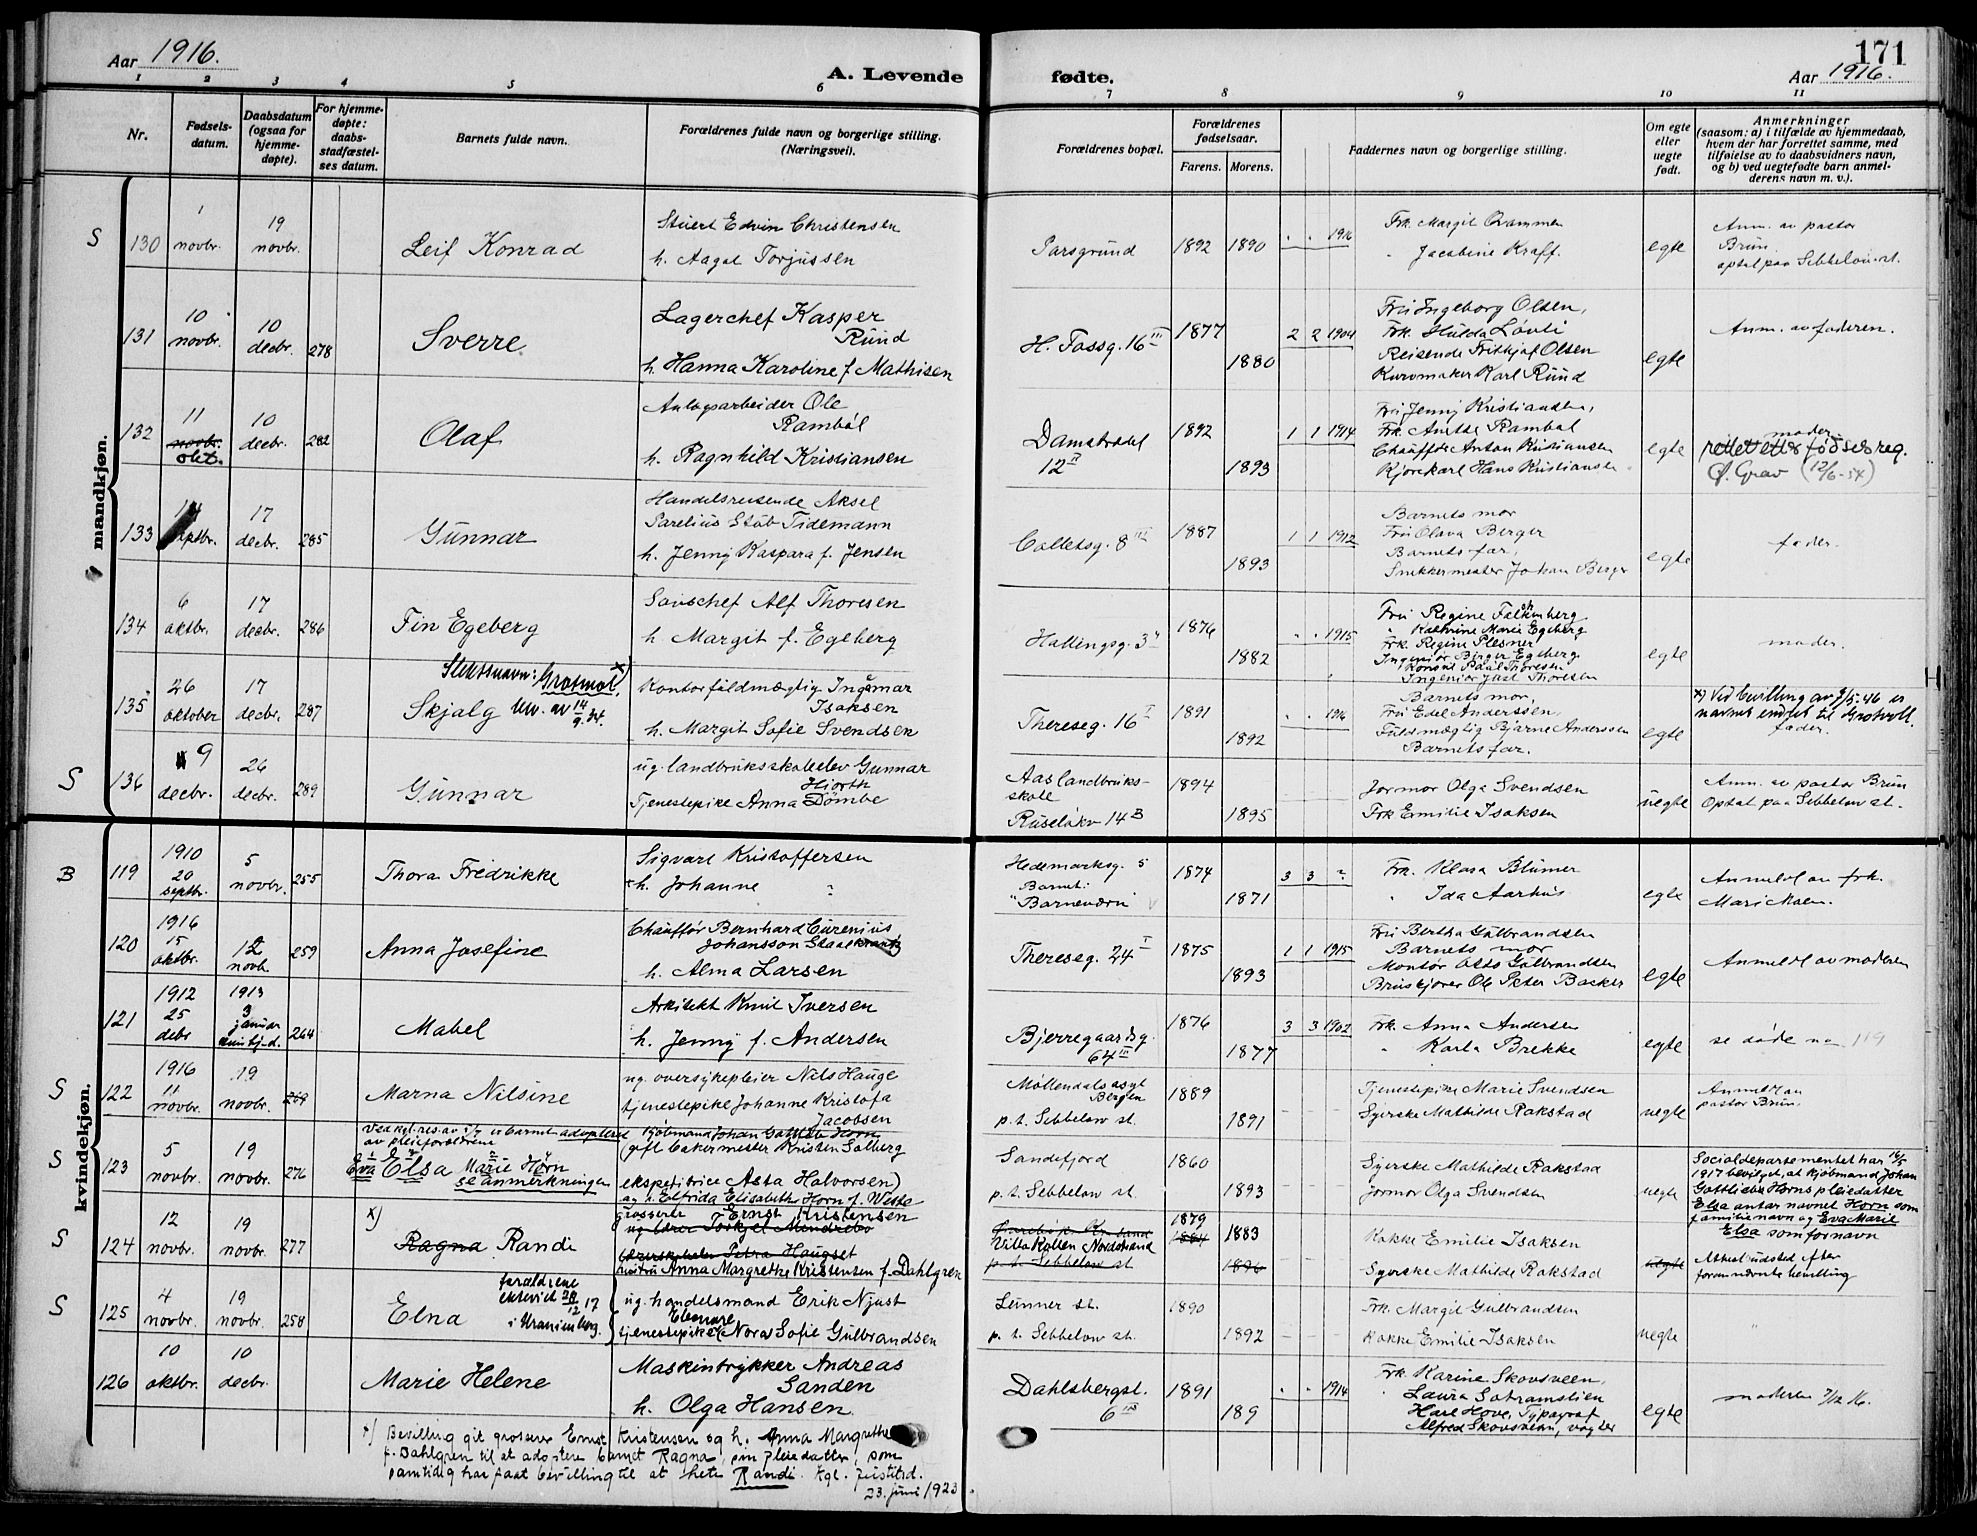 Aar 1916.
A. Levende fødte.
171
Aar 1916.
1 2 3 4 5 6 7 8 9 10 11
Nr.
Fødsels-
datum.
Daabsdatum
(ogsaa for
hjemme-
døpte).
For hjemme-
døpte:
daabs-
stadfæstel-
ses datum.
Barnets fulde navn.
Forældrenes fulde navn og borgerlige stilling.
(Næringsvei).
Forældrenes bopæl.
Forældrenes
fødselsaar.
Farens. Morens.
Faddernes navn og borgerlige stilling.
Om egte
eller
uegte
født.
Anmerkninger
(saasom: a) i tilfælde av hjemmedaab,
hvem der har forrettet samme, med
tilføielse av to daabsvidners navn,
og b) ved uegtefødte barn anmel-
derens navn m. v.).
mandkjøn.
S 130
1 novbr.
19 novbr.
Leif Konrad
Stuert Edvin Christensen
h. Aagot Torjussen
Porsgrund 1892 1890 " " 1916
Frk. Margit Brammer
" Jacobine Kraff.
egte
Anm. av pastor
Brun.
optat paa Sebbelow st.
131
10 novbr.
10 decbr. 278
Sverre
Lagerchef Kasper
Ruud
h. Hanna Karoline f. Mathisen
H. Tossg. 16 III 1877 1880 2 2 1904
Fru Ingeborg Olsen,
Frk. Hulda Løvli
Reisende Fritkjof Olsen
Kurvmaker Karl Ruud
egte
Anm. av faderen.
132
11 novbr.
okt.
10 decbr. 282
Olaf
Anlegsarbeider Ole
Rambøl
h. Ragnhild Kristiansen
Damstredet
12 II 1892 1893 1 1 1914
Fru Jenny Kristiansen,
Frk. Anette Rambøl
Chauffør Anton Kristiansen
Kjørekarl Hans Kristiansen
egte
moder.
rettet etter fødselsreg.
Ø. Grav (12/6-54)
133
14 septbr.
17 decbr. 285
Gunnar
Handelsreisende Aksel
Parelius Stub Tidemann
h. Jenny Kaspara f. Jensen
Colletsg. 8 III 1887 1893 1 1 1912
Barnets mor
Fru Olava Berger
Barnets far,
Snekkermester Johan Berger
egte
fader.
134
6 oktbr.
17 decbr. 286
Fin Egeberg
Souschef Alf Thoresen
h. Margit f. Egeberg
Hallingsg. 3 II 1876 1882 " " 1915
Fru Regine Falkenberg
" Kathrine Marie Egeberg
Frk. Regine Plesner
Ingeniør Birger Egeberg
Konsul Paal Thoresen
Ingeniør Just Thoresen
egte
moder.
135
26 oktober
17 decbr. 287
Slektsnavn: Grotmol x)
Skjalg bev. av 14/9.34
Kontorfuldmægtig Ingemar
Isaksen
h. Margit Sofie Svendsen
Thereseg. 16 I 1891 1892 " " 1916
Barnets mor,
Fru Edel Anderssen,
Fuldmægtig Bjarne Anderssen
Barnets far.
egte
x) Ved bevilling av 9/5-46 er
navnet endret til Grotvoll.
fader.
S 136
9 decbr.
26 decbr. 289
Gunnar
ug. landbruksskoleelev Gunnar
Hjorth
Tjenestepike Anna Dömbe
Aas landbruks-
skole
Ruseløkv 14 B 1894 1895
Jormor Olga Svendsen
Frk Emilie Isaksen
uegte
Anm. av pastor Brun
Optat paa Sebbelow st.
kvindekjøn.
B 119
1910
20 septbr.
5 novbr. 255
Thora Fredrikke
Sigvart Kristoffersen
h. Johanne "
Hedemarksg. 5
Barnet:
"Barnevern" 1874 1871 3 3 ?
Frk. Klara Blumer
" Ida Aarhus
egte
Anmeldt av frk.
Mari Moen.
120
1916
15 oktbr.
12 novb. 259
Anna Josefine
Chauffør Bernhard Curenius
Johansson Staalkrantz
h. Alma Larsen
Thereseg. 24 I 1875 1893 1 1 1915
Fru Bertha Gulbrandsen
Barnets mor
Montør Otto Gulbrandsen
Bruskjører Ole Peter Backer
egte
Anmeldt av moderen
121
1912
25 debr
1913
3 januar
hmtj.d. 264
Mabel
Arkitekt Knut Iversen
h. Jenny f. Andersen
Bjerregaardsg.
64 III 1876 1877 3 3 1902
Frk. Anna Andersen
" Karla Brekke
egte
se døde no 119
S 122
1916
11 novbr.
19 novbr. 269
Marna Nilsine
ug. oversykepleier Nils Hauge
tjenestepike Johanne Kristofa
Jacobsen
Møllendals asyl
Bergen
p.t. Sebbelow st. 1889 1891
Tjenestepike Marie Svendsen
Syerske Mathilde Rakstad
uegte
Anmeldt av
pastor Brun.
S 123
5 novbr.
19 novbr. 276
av pleieforældrene
Eva Elsa Marie Horn
se anmerkningen
Kjøbmand Johan Gottlieb Horn
(gift bakermester Kristen Solberg
ekspeditrice Asta Halvorsen)
og h. Elfrida Elisabeth Horn f. Weste
Sandefjord
p.t. Sebbelow st. 1860 1893
Syerske Mathilde Rakstad
Jormor Olga Svendsen
uegte
Socialdepartementet har 16/5
1917 bevilget, at kjøbmand Johan
Gottlieb Horns pleiedatter
Elsa antar navnet Horn som
familienavn og Eva Marie
Elsa som fornavn
S 124
12 novbr.
19 novbr. 277
x)
Ragna Randi
grosserer Ernst Kristensen
ug. lærer Torkjel Mendrebø
lærerskolelev Petra Haugset
hustru Anna Margrethe Kristensen f. Dahlgren
Villa Kollen Nordstrand
p.t. Sebbelow st 1879 1884 1883 1896
Kokke Emilie Isaksen
Syerske Mathilde Rakstad
uegte
Attest utsted efter
forannævnte bevilling
S 125
4 novbr.
19 novbr. 258
Elna
forældrene
ektevied 28/12 17
i Uranienborg.
ug. handelsmand Erik Njust
Eleonore
tjenestepike Nora Sofie Gulbrandsen
Lunner st.
p.t. Sebbelow st. 1890 1892
Frk. Margit Gulbrandsen
Kokke Emilie Isaksen
uegte
"
126
10 oktbr.
10 decbr.
Marie Helene
Maskintrykker Andreas
Sanden
h. Olga Hansen.
Dahlsbergst.
6 III 1891 189 " " 1914
Frk. Karine Skovsveen,
" Laura Sotramslien
Harl Hove, Typograf
Alfred Skovsveen, vogter
egte
moderen 7/12 16.
x) Bevilling git grosserer Ernst Kristensen og h. Anna Margrethe
f. Dahlgren til at adoptere barnet Ragna, sin pleiedatter, som
samtidig har faat bevilling til at hete Randi. Kgl. justitsd.
23. juni 1923.